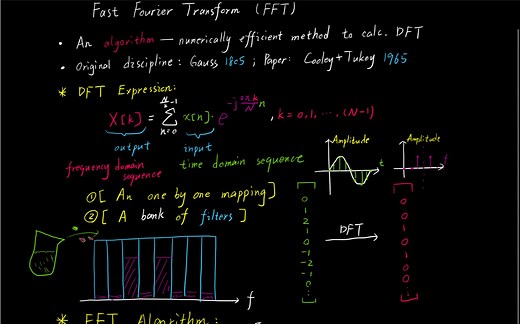 Fast Fourier Transform (FFT)
• An algorithm — nunerically efficient method to calc. DFT
• Original discipline: Gauss 1805 ; Paper: Cooley + Tukey 1965
* DFT Expression:
X[k] = Σ_{n=0}^{N-1} x[n]· e^{-j (2πk/N) n} , k = 0, 1, ..., (N-1)
output input
frequency domain sequence
time domain sequence
① [ An one by one mapping]
② [ A bank of filters ]
f
Amplitude
t
Amplitude
f
0
1
2
1
0
-1
-2
-1
0
:
DFT
0
0
1
0
1
0
0
:
* FFT Algorithm: